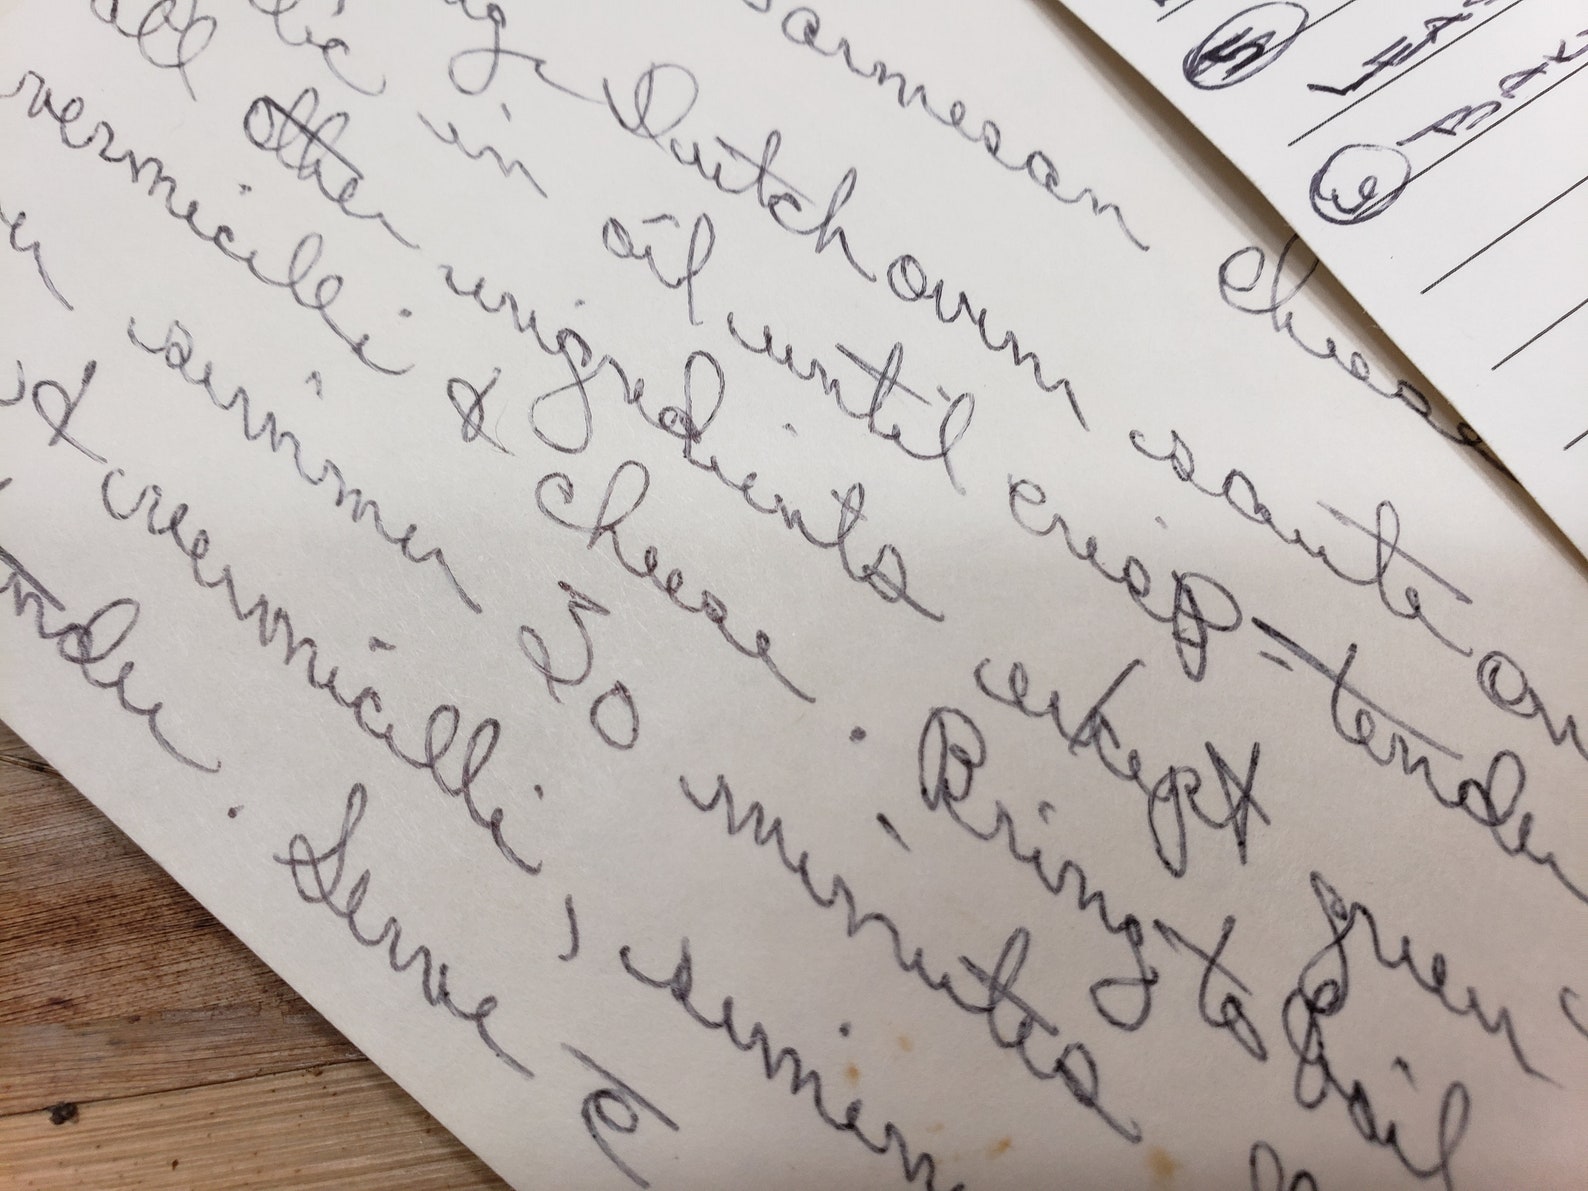 Parmesan cheese
Dutch oven, saute on
in oil until crisp-tender
all other ingredients except green
vermicelli & cheese. Bring to boil
simmer 20 minutes
vermicelli, simmer
nder. Serve c̄